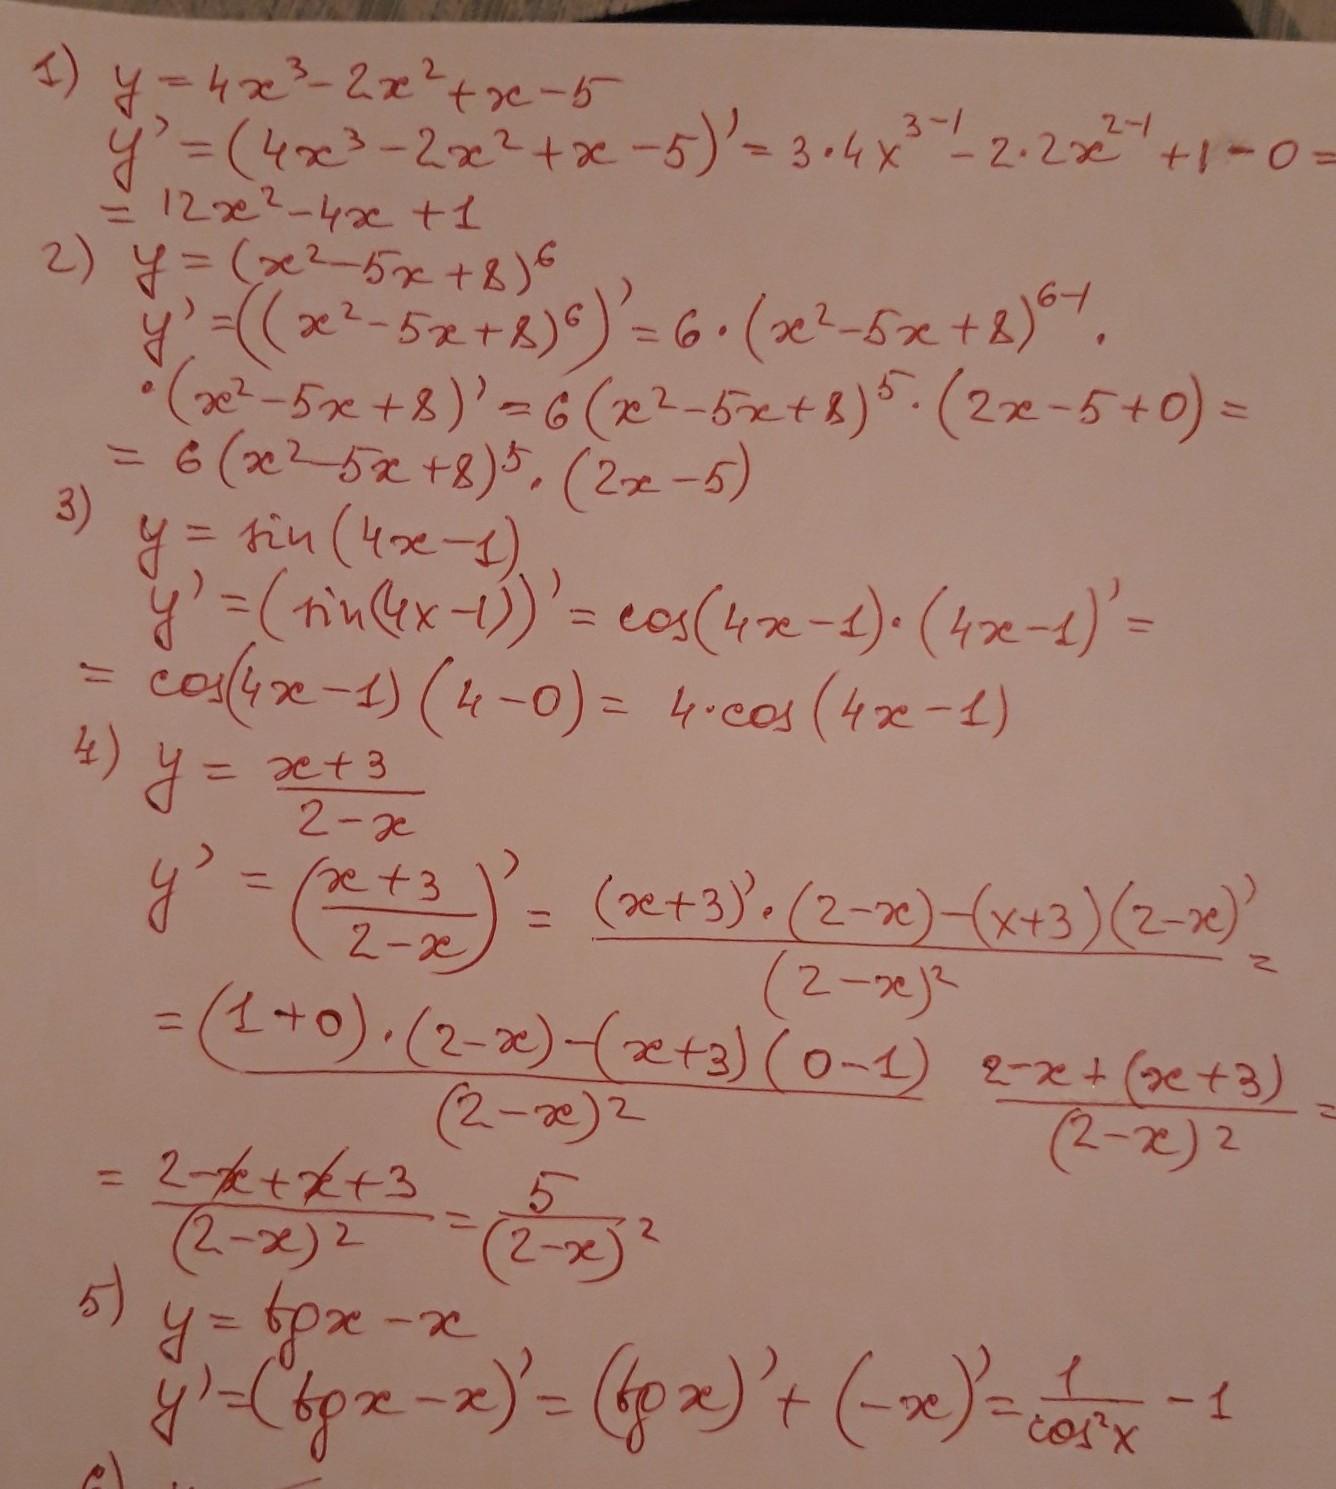 1) y = 4x³ - 2x² + x - 5
y' = (4x³ - 2x² + x - 5)' = 3·4x³⁻¹ - 2·2x²⁻¹ + 1 - 0 =
= 12x² - 4x + 1
2) y = (x² - 5x + 8)⁶
y' = ((x² - 5x + 8)⁶)' = 6·(x² - 5x + 8)⁶⁻¹ ·
·(x² - 5x + 8)' = 6(x² - 5x + 8)⁵·(2x - 5 + 0) =
= 6(x² - 5x + 8)⁵·(2x - 5)
3) y = sin(4x - 1)
y' = (sin(4x - 1))' = cos(4x - 1)·(4x - 1)' =
= cos(4x - 1)(4 - 0) = 4·cos(4x - 1)
4) y = (x + 3)/(2 - x)
y' = ((x + 3)/(2 - x))' = ((x + 3)'·(2 - x) - (x + 3)(2 - x)')/(2 - x)² =
= ((1 + 0)·(2 - x) - (x + 3)(0 - 1))/(2 - x)² (2 - x + (x + 3))/(2 - x)² =
= (2 - x + x + 3)/(2 - x)² = 5/(2 - x)²
5) y = tgx - x
y' = (tgx - x)' = (tgx)' + (-x)' = 1/cos²x - 1
6)